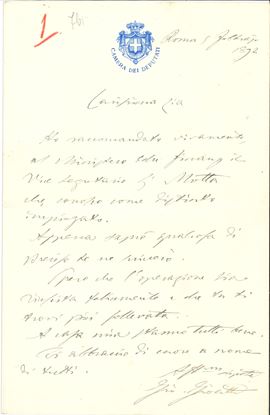 1.
76
CAMERA DEI DEPUTATI
Roma 5 febbraio
1892
Carissima zia
Ho raccomandato vivamente
al Ministero delle finanze il
Vice segretario Motta
che conosco come distinto
impiegato.
Appena saprò qualcosa di
preciso te ne
Spero che l'operazione sia
riuscita e che tu ti
trovi più sollevata.
A casa mia stanno tutti bene.
Ti abbraccio di cuore a nome
di tutti.
Aff.mo nipote
Gio. Giolitti